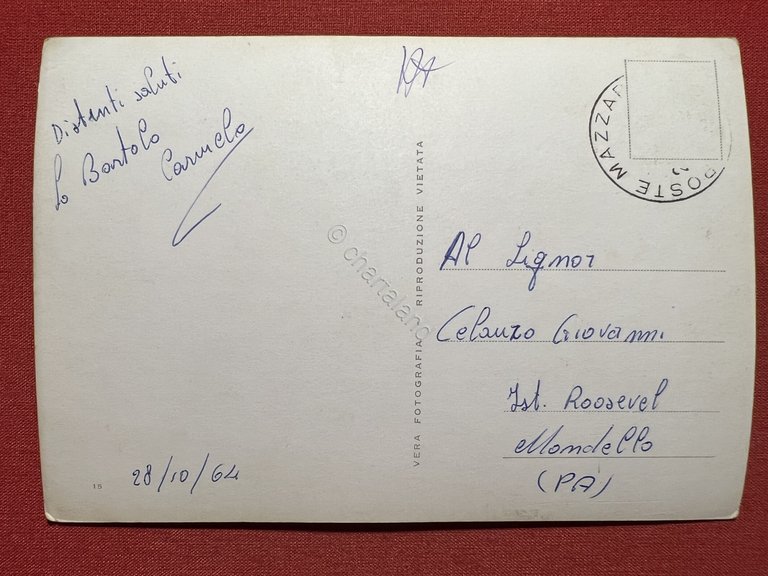 Distinti saluti
Lo Bartolo
Carmelo
28/10/64
15
VERA FOTOGRAFIA RIPRODUZIONE VIETATA
© chartaland
POSTE MAZZAR
Al Signor
Celauzo Giovanni
Ist. Roosevel
Mondello
(PA)